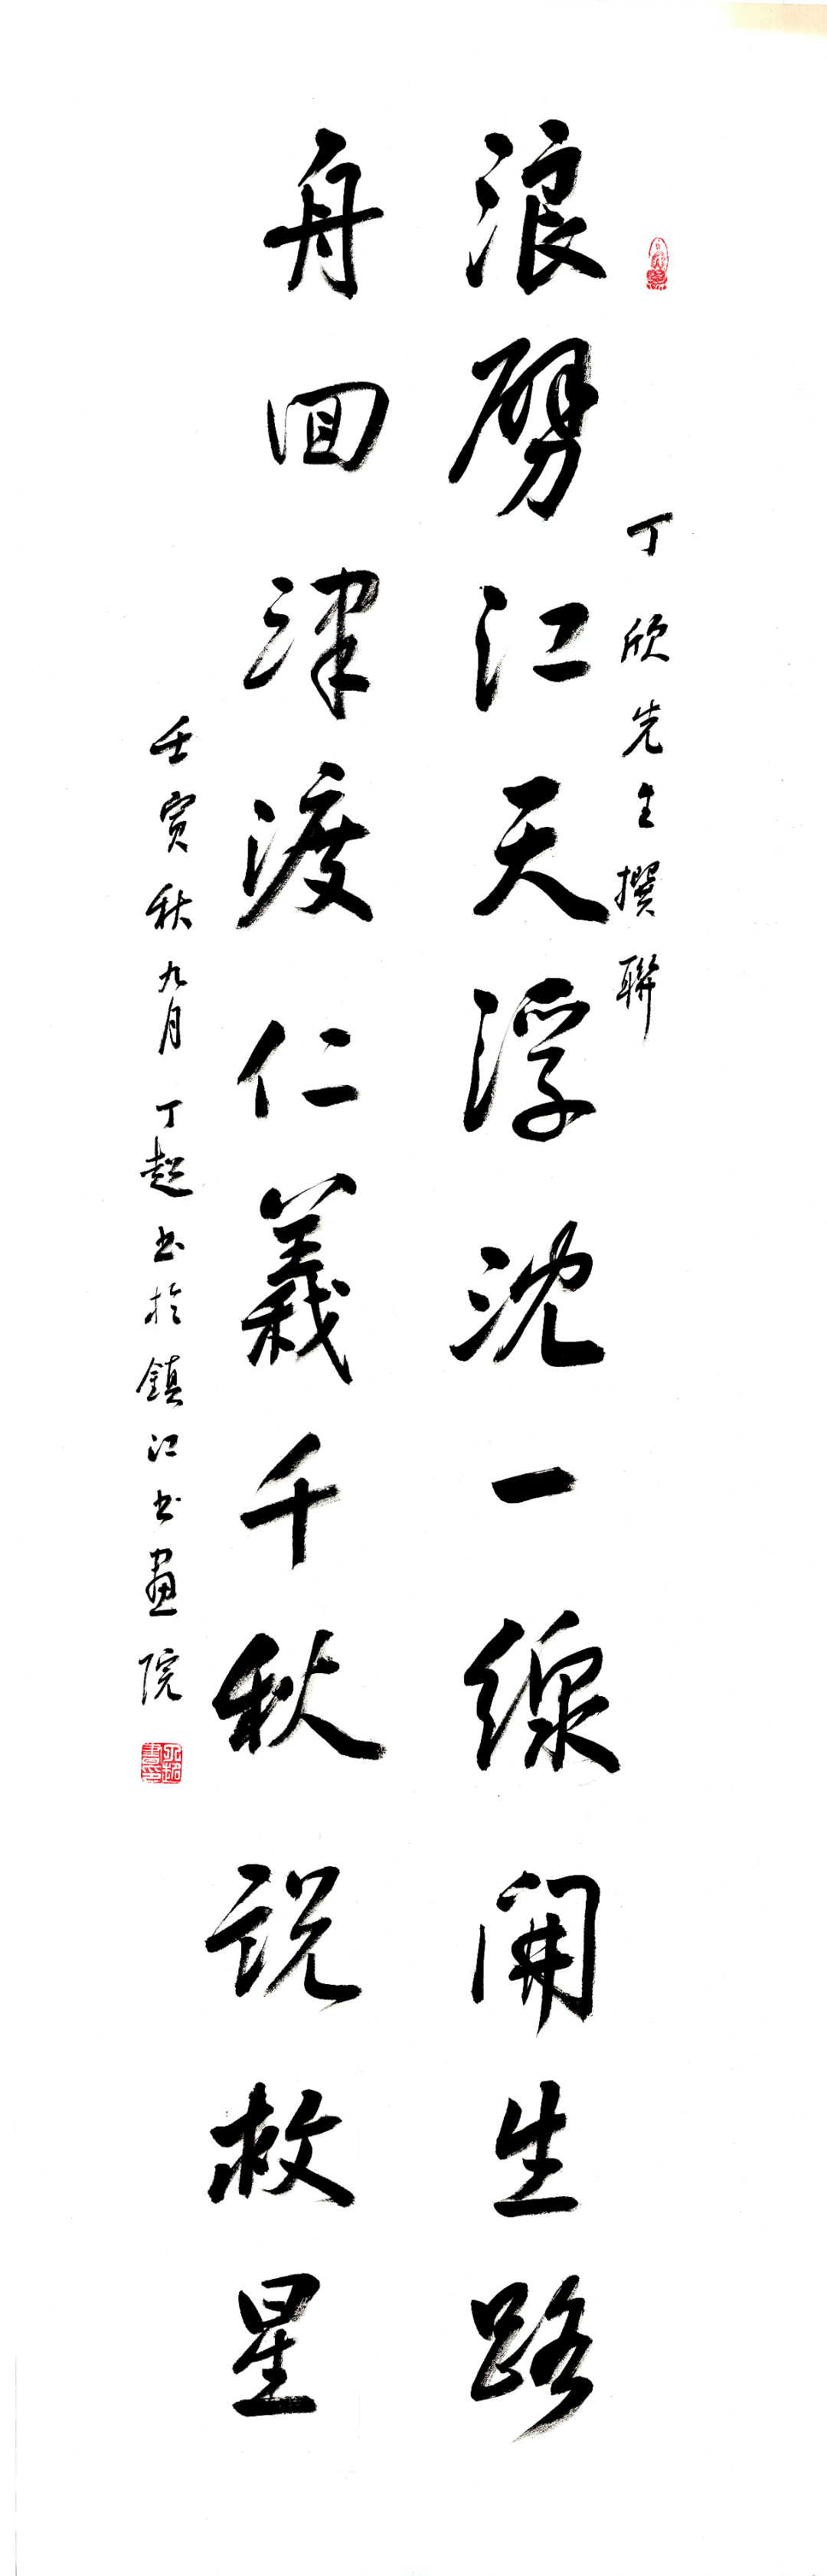 丁欣先生撰聯
浪劈江天浮沈一線開生路
舟回津渡仁義千秋説救星
壬寅秋九月丁超书於鎮江书畫院